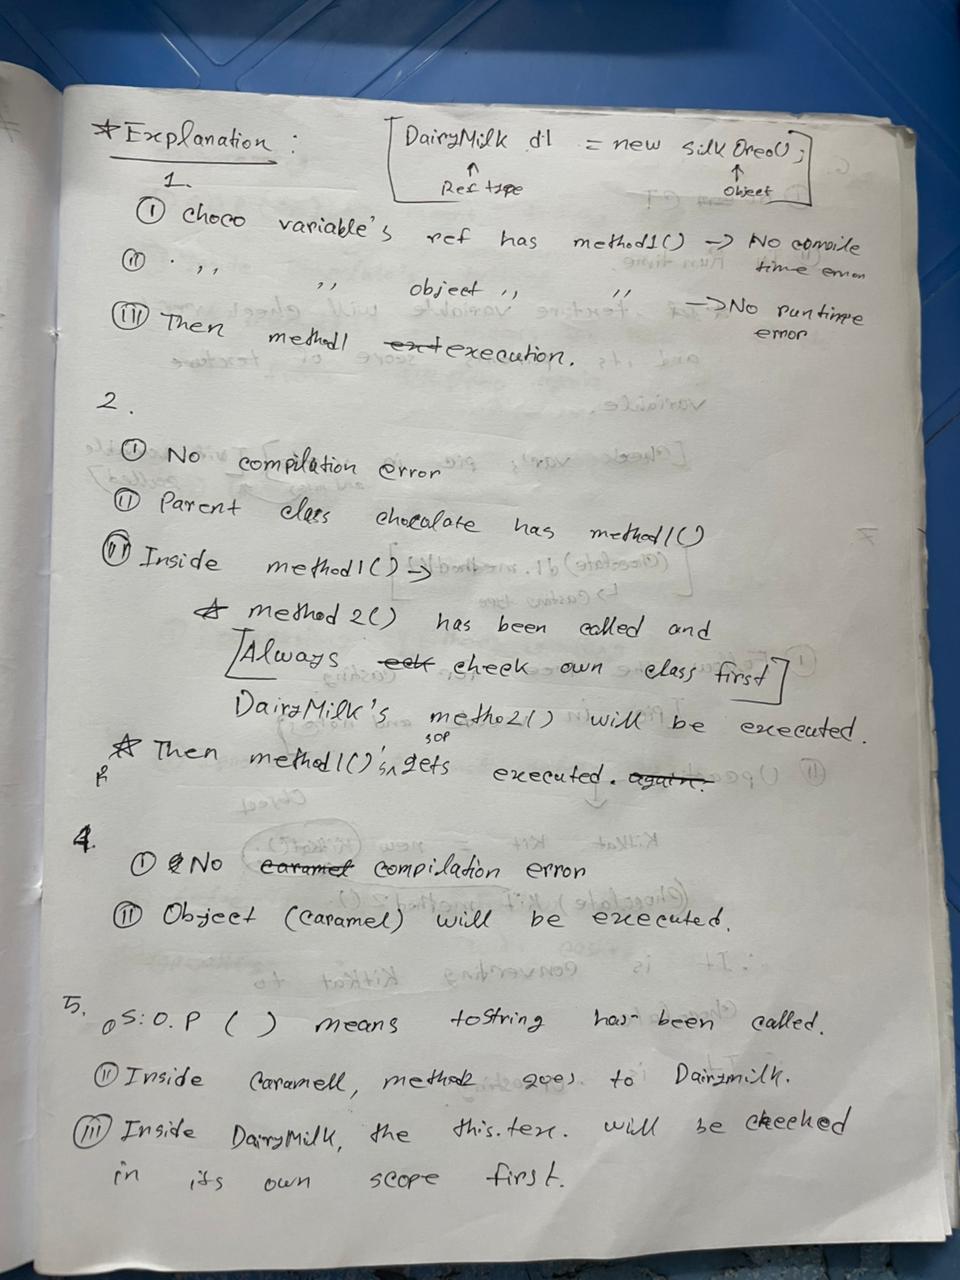 ☆ Explanation :
[DairyMilk d1 = new silkOreo();]
↑ Ref type
↑ Object
1.
(i) choco variable's ref has method1() → No compile time error
(ii) ,, ,, object ,, ,, → No runtime error
(iii) Then method1 ext execution.
2.
(i) No compilation error
(ii) Parent class chocolate has method1()
(iii) Inside method1() →
☆ method 2() has been called and
[Always cek cheek own class first]
DairyMilk's metho2() will be executed.
☆ Then method1()'s sop gets executed. again.
4.
(i) No caramel compilation error
(ii) Object (caramel) will be executed.
5.
S.O.P ( ) means toString has been called.
(ii) Inside Caramell, method2 goes to Dairymilk.
(iii) Inside DairyMilk, the this.tex. will be checked
in its own scope first.